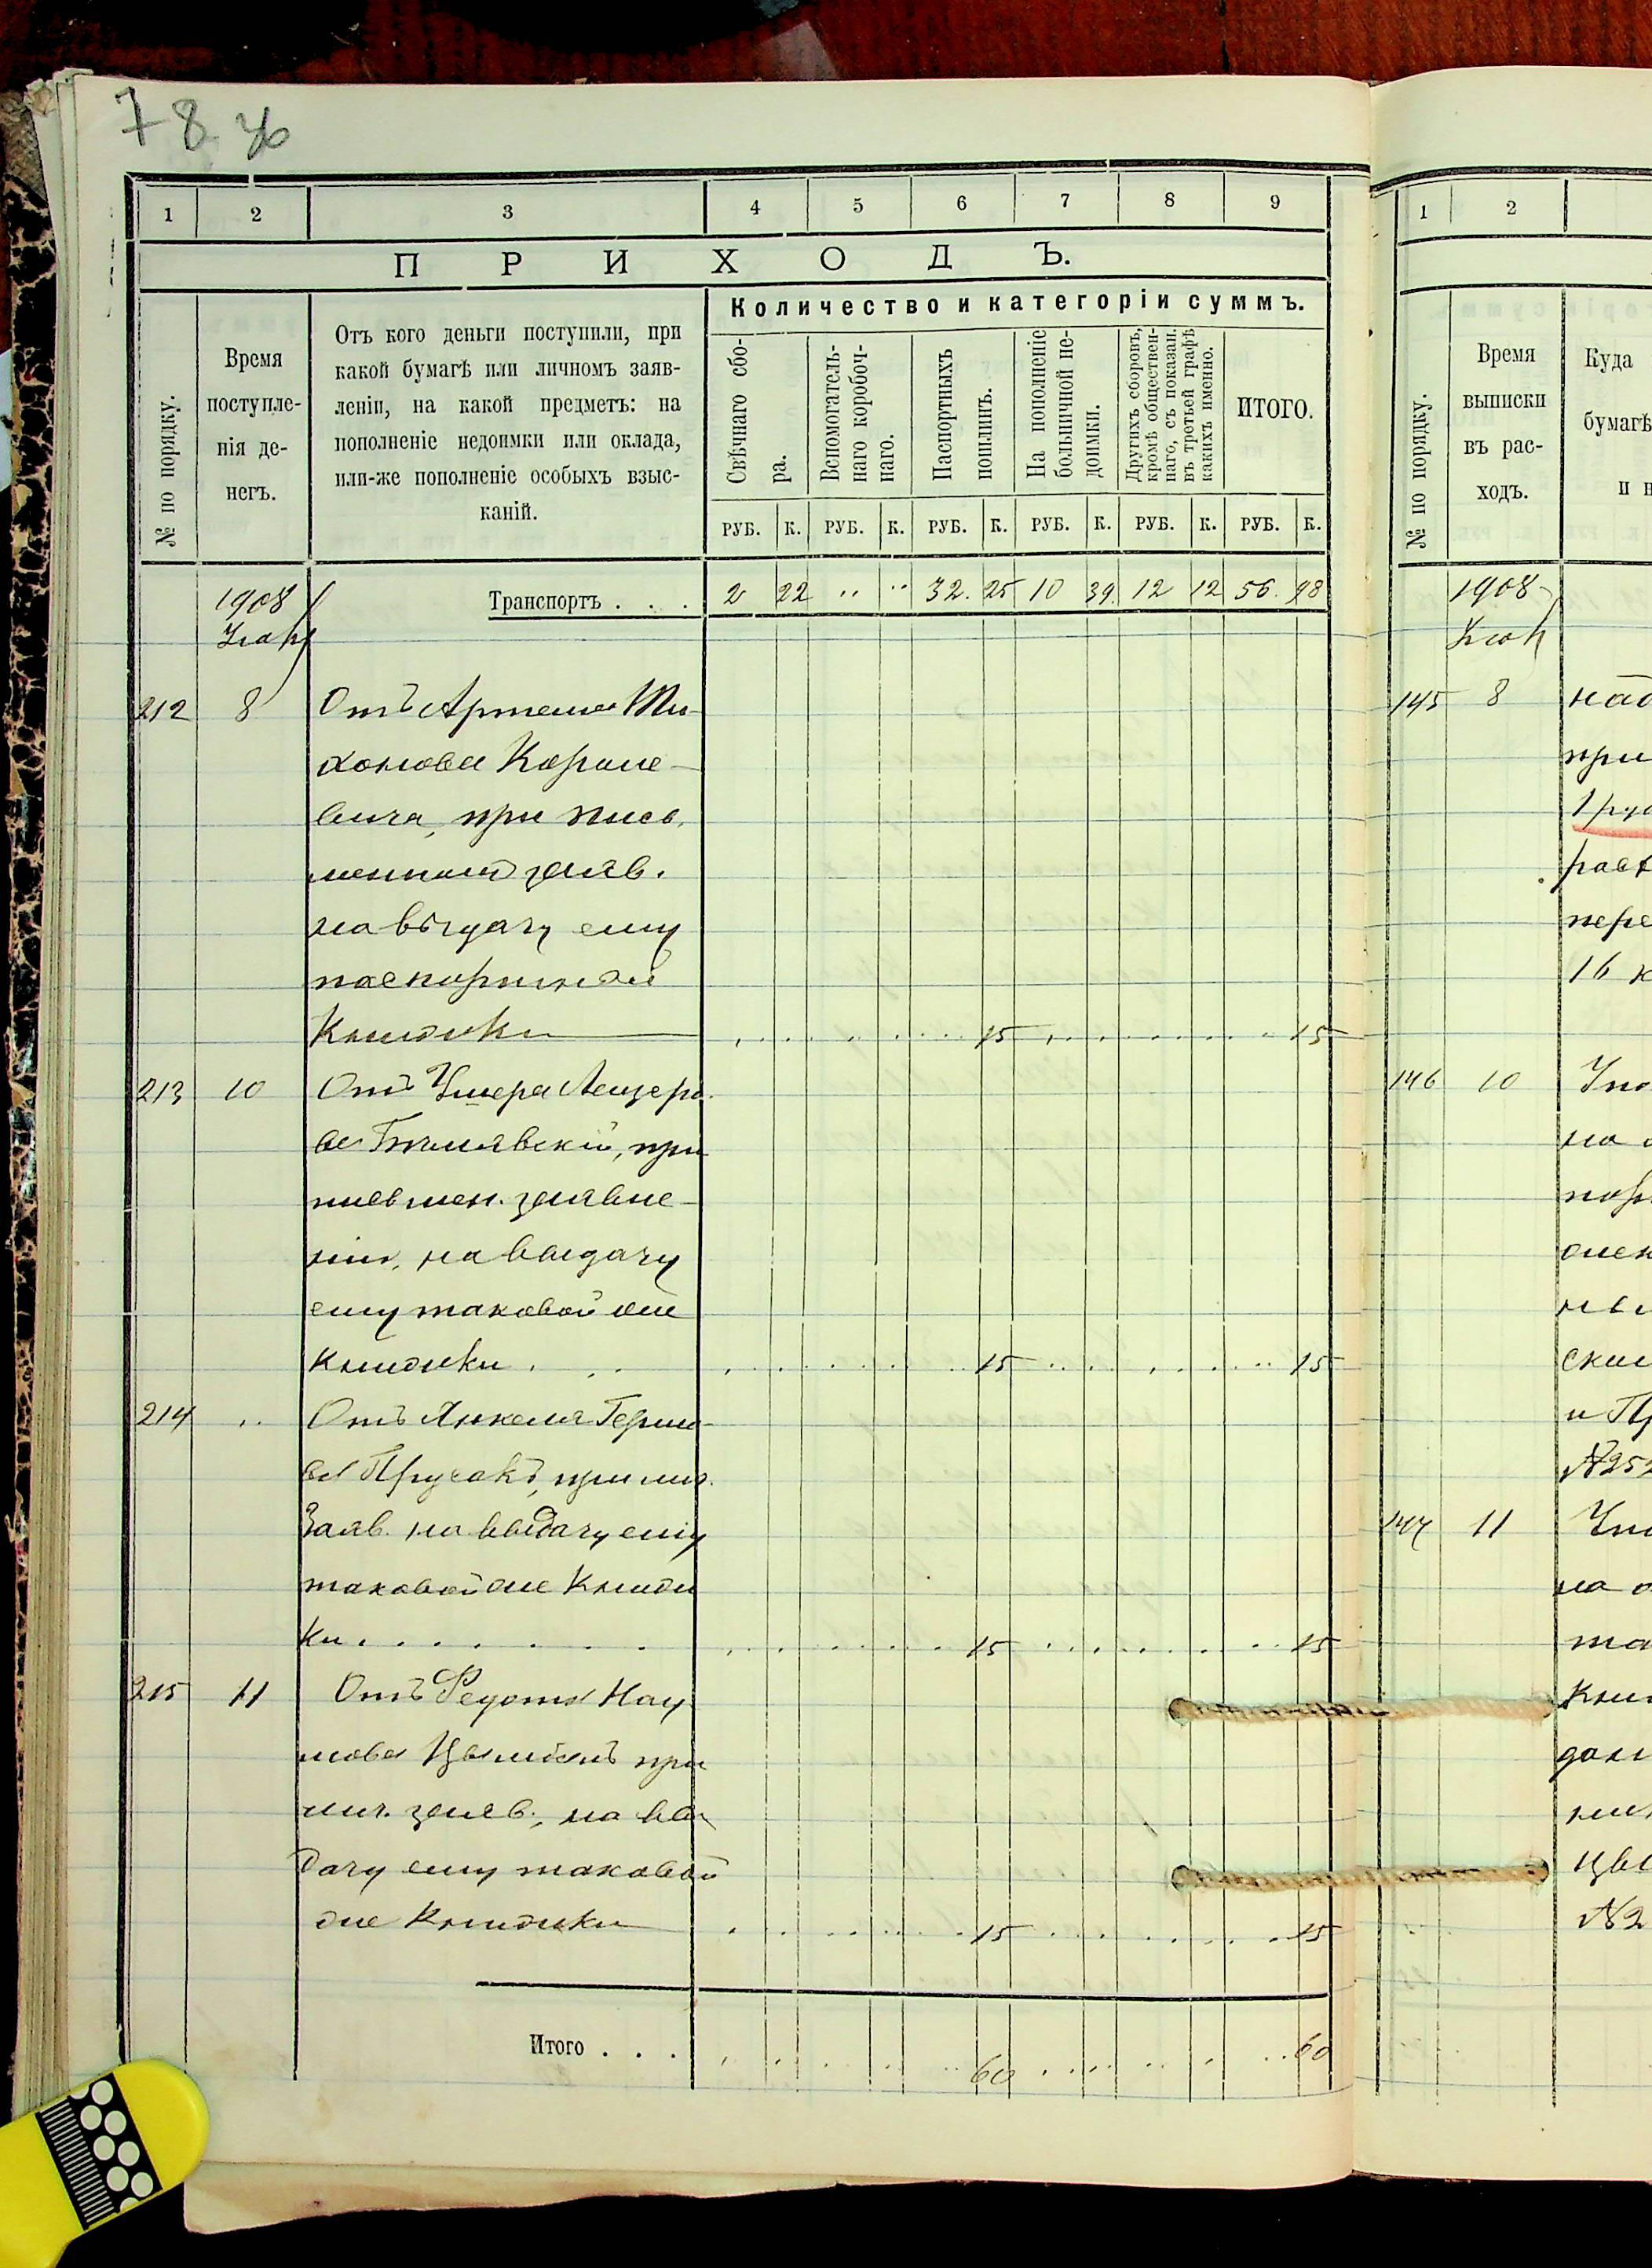 78
1 2 3 4 5 6 7 8 9
ПРИХОДЪ.
№ по порядку.
Время
поступле-
нія де-
негъ.
Отъ кого деньги поступили, при
какой бумагѣ или личномъ заяв-
леніи, на какой предметъ: на
пополненіе недоимки или оклада,
или-же пополненіе особыхъ взыс-
каній.
Количество и категоріи суммъ.
Свѣчнаго сбо-
ра.
Вспомогатель-
наго коробоч-
наго.
Паспортныхъ
пошлинъ.
На пополненіе
больничной не-
доимки.
Другихъ сборовъ,
кромѣ обществен-
наго, съ показан.
въ третьей графѣ
какихъ именно.
ИТОГО.
РУБ. К. РУБ. К. РУБ. К. РУБ. К. РУБ. К. РУБ. К.
1908 Транспортъ . . . 2 22 " " 32. 25 10 39. 12 12 56. 98
212 8 Отъ Артема Ти-
хонова Короле-
вича, при пись.
менном заяв.
на выдачу ему
паспортной
Книжки 15 15
213 10 Отъ Лейзеро.
ва при
письмен. заявле-
нiи, на выдачу
ему таковой же
книжки . . . 15 15
214 " Отъ Янкеля Герш-
ва Пружакъ, при лич.
Заяв. на выдачу ему
таковой же Книж
ки . . . . . . . 15 15
215 11 Отъ Федота Нау
мова при
лич. заяв., на вы
дачу ему таковой
же Книжки 15 15
Итого . . . 60 60
1 2
№ по порядку.
Время
выписки
въ рас-
ходъ.
Куда
бумагѣ
и н
1908
145 8
при
пере
16 к
146 10
на
147 11
на
та